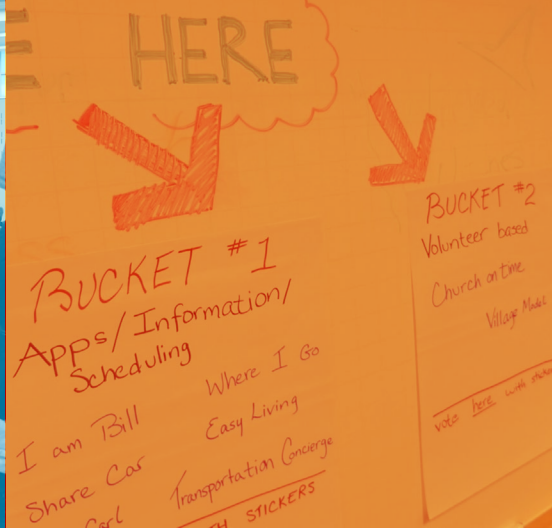 HERE
BUCKET #1
Apps/Information/
Scheduling
I am Bill
Where I Go
Share Car
Easy Living
Transportation Concierge
STICKERS
BUCKET #2
Volunteer based
Church on time
Village Model
vote here with